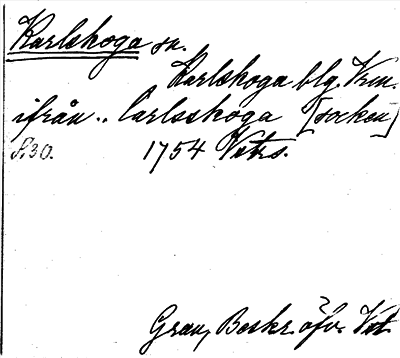 Karlskoga sn.
Karlskoga blg. Vrm.
ifrån .. Carlsskoga [socken]
S. 30. 1754 Vrtrs.
Grau, Beskr. öfv. Vet.